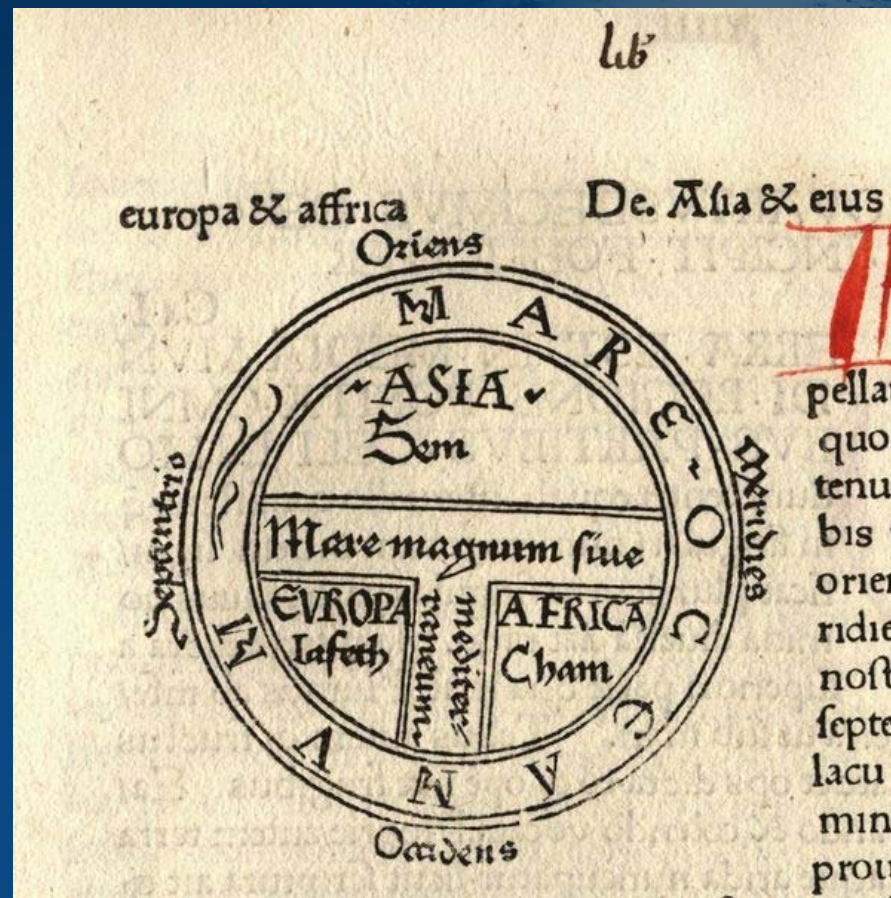 lib
europa & affrica
De. Aſia & eius
Oriens
MARE OCEANVM
ASIA
Sem
Septentrio
Meridies
Mare magnum ſiue
mediter
raneum
EVROPA
Iafeth
AFRICA
Cham
Occidens
pella
quo
tenu
bis
orien
ridie
noſt
ſepte
lacu
min
prou